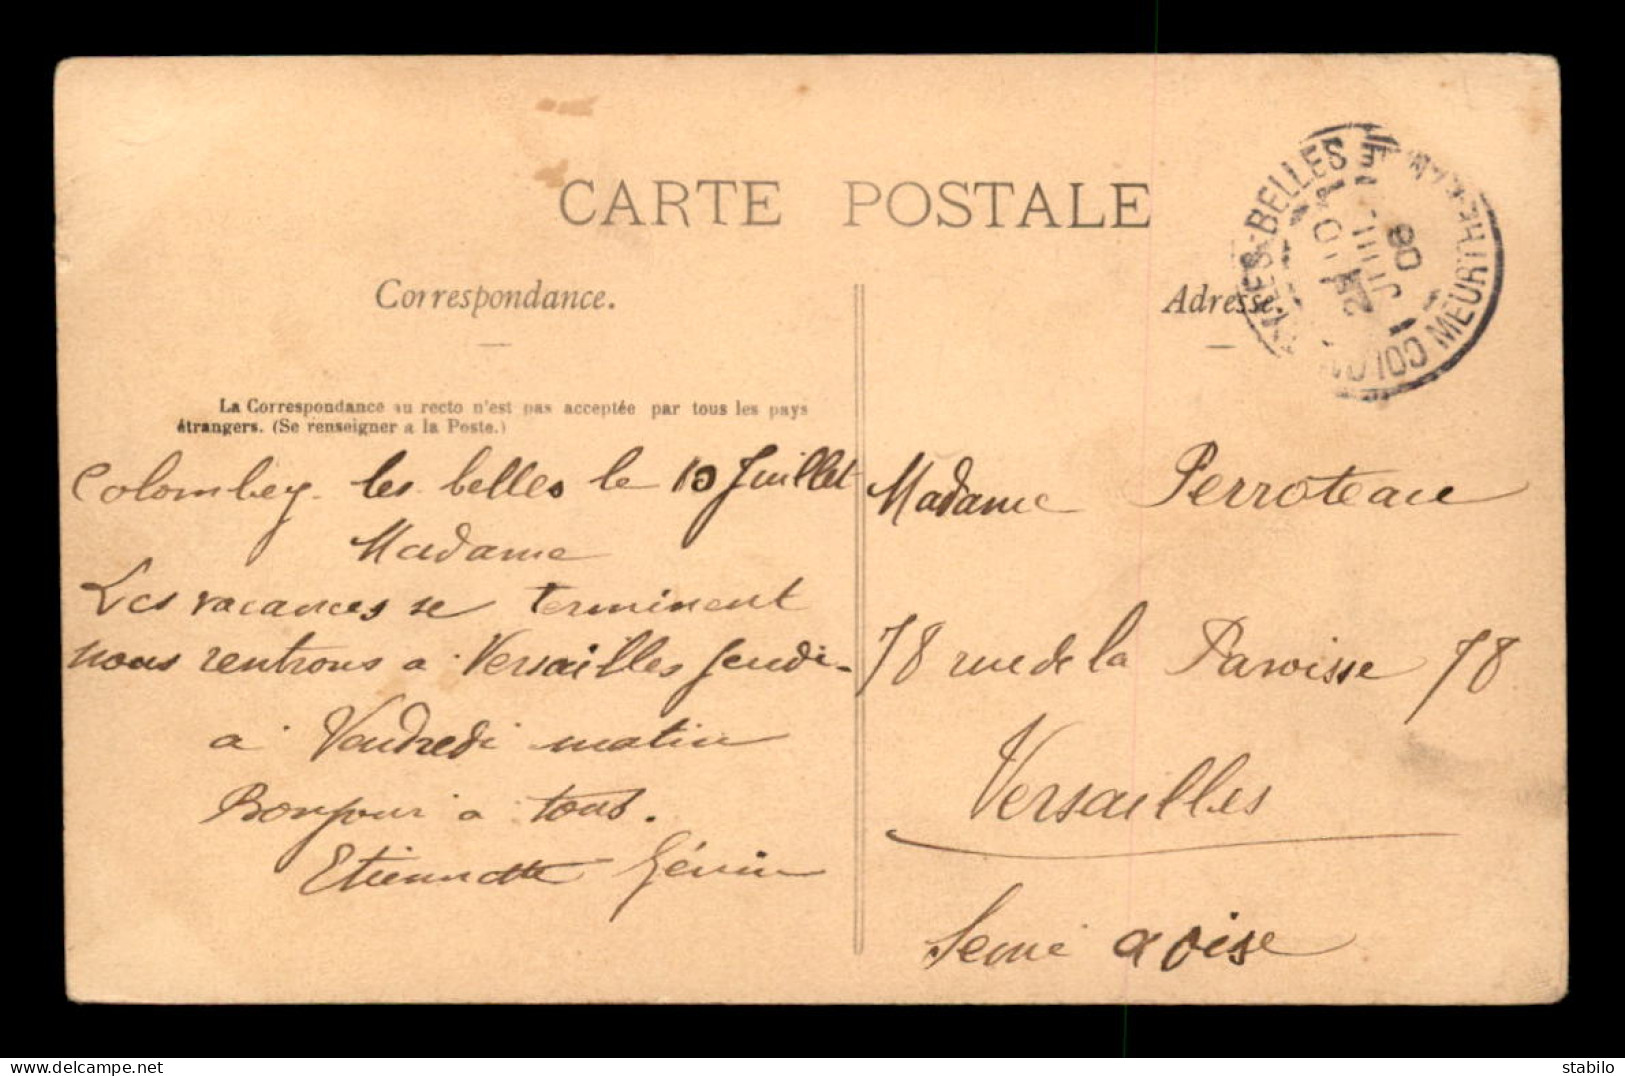 CARTE POSTALE
Correspondance.
La Correspondance au recto n'est pas acceptée par tous les pays
étrangers. (Se renseigner a la Poste.)
Colombey les belles le 10 Juillet
Madame
Les vacances se terminent
nous rentrons a Versailles Jeudi-
a Vendredi matin
Bonjour a tous.
Etiennette Génin
Adresse
Madame Perroteau
78 rue de la Paroisse 78
Versailles
Seine & oise
BELLES
MEURTHE
10
JUIL.
06
delcampe.net
stabilo